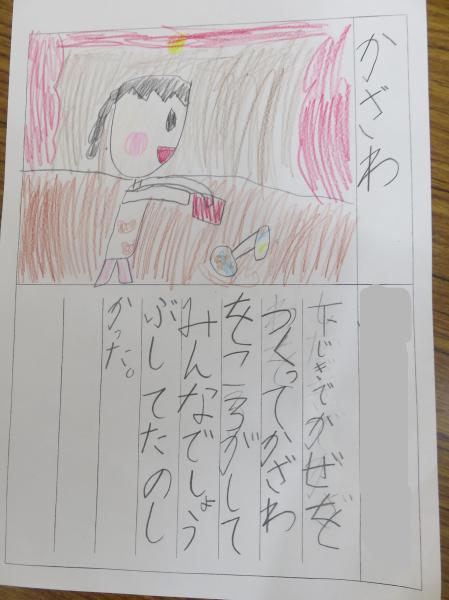 かざわ
下じきでがぜを
つくってかざわ
をころがして
みんなでしょう
ぶしてたのし
かった。